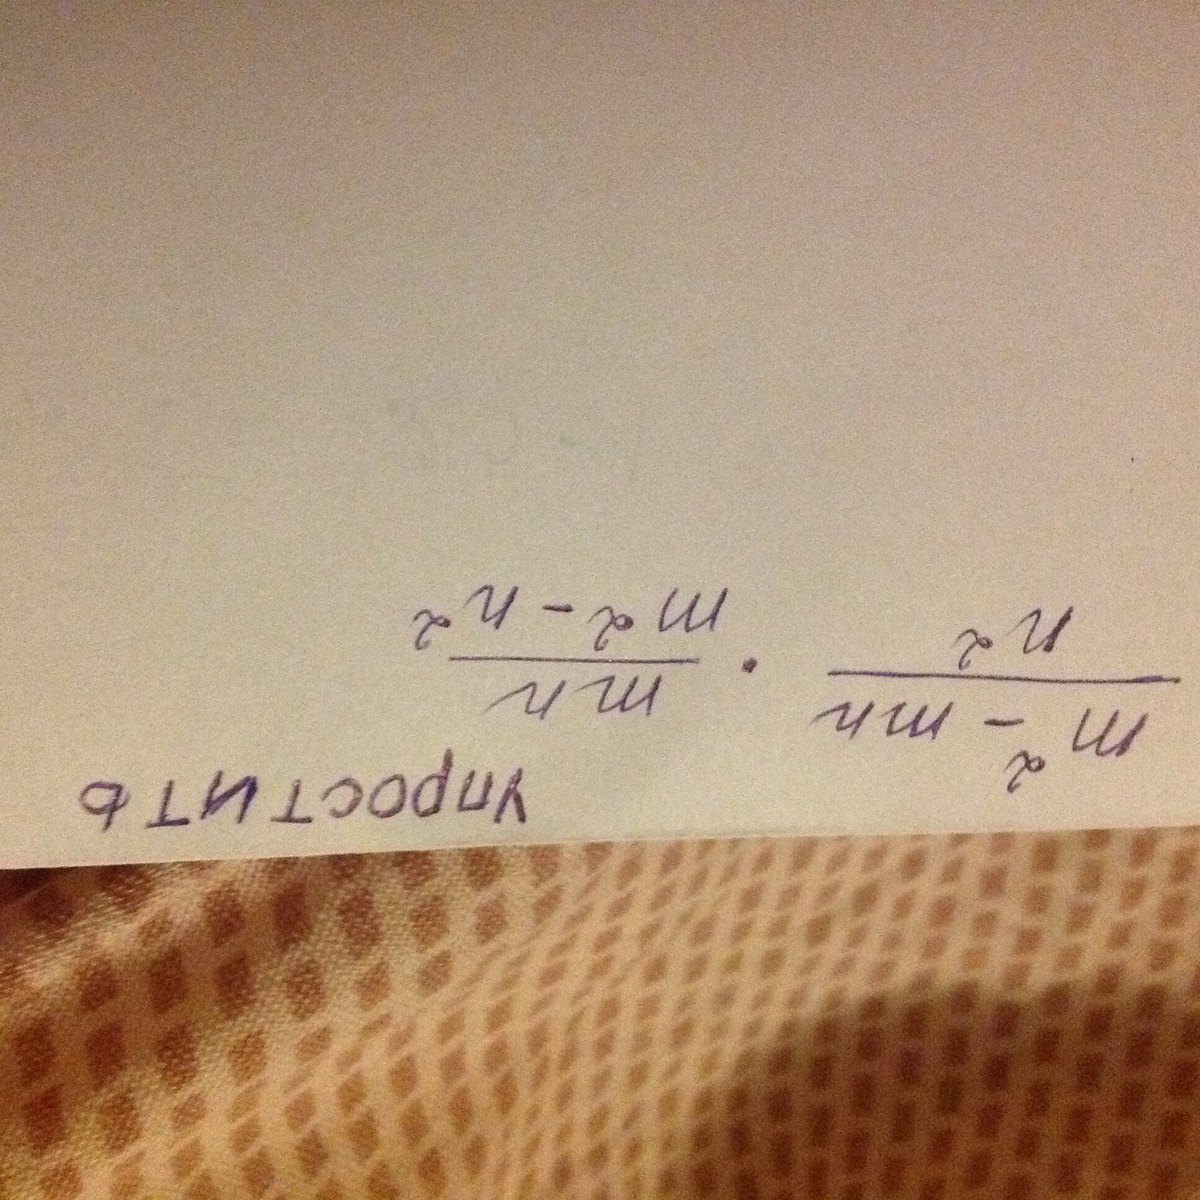 Упростить
m² - mn / n² · mn / m² - n²